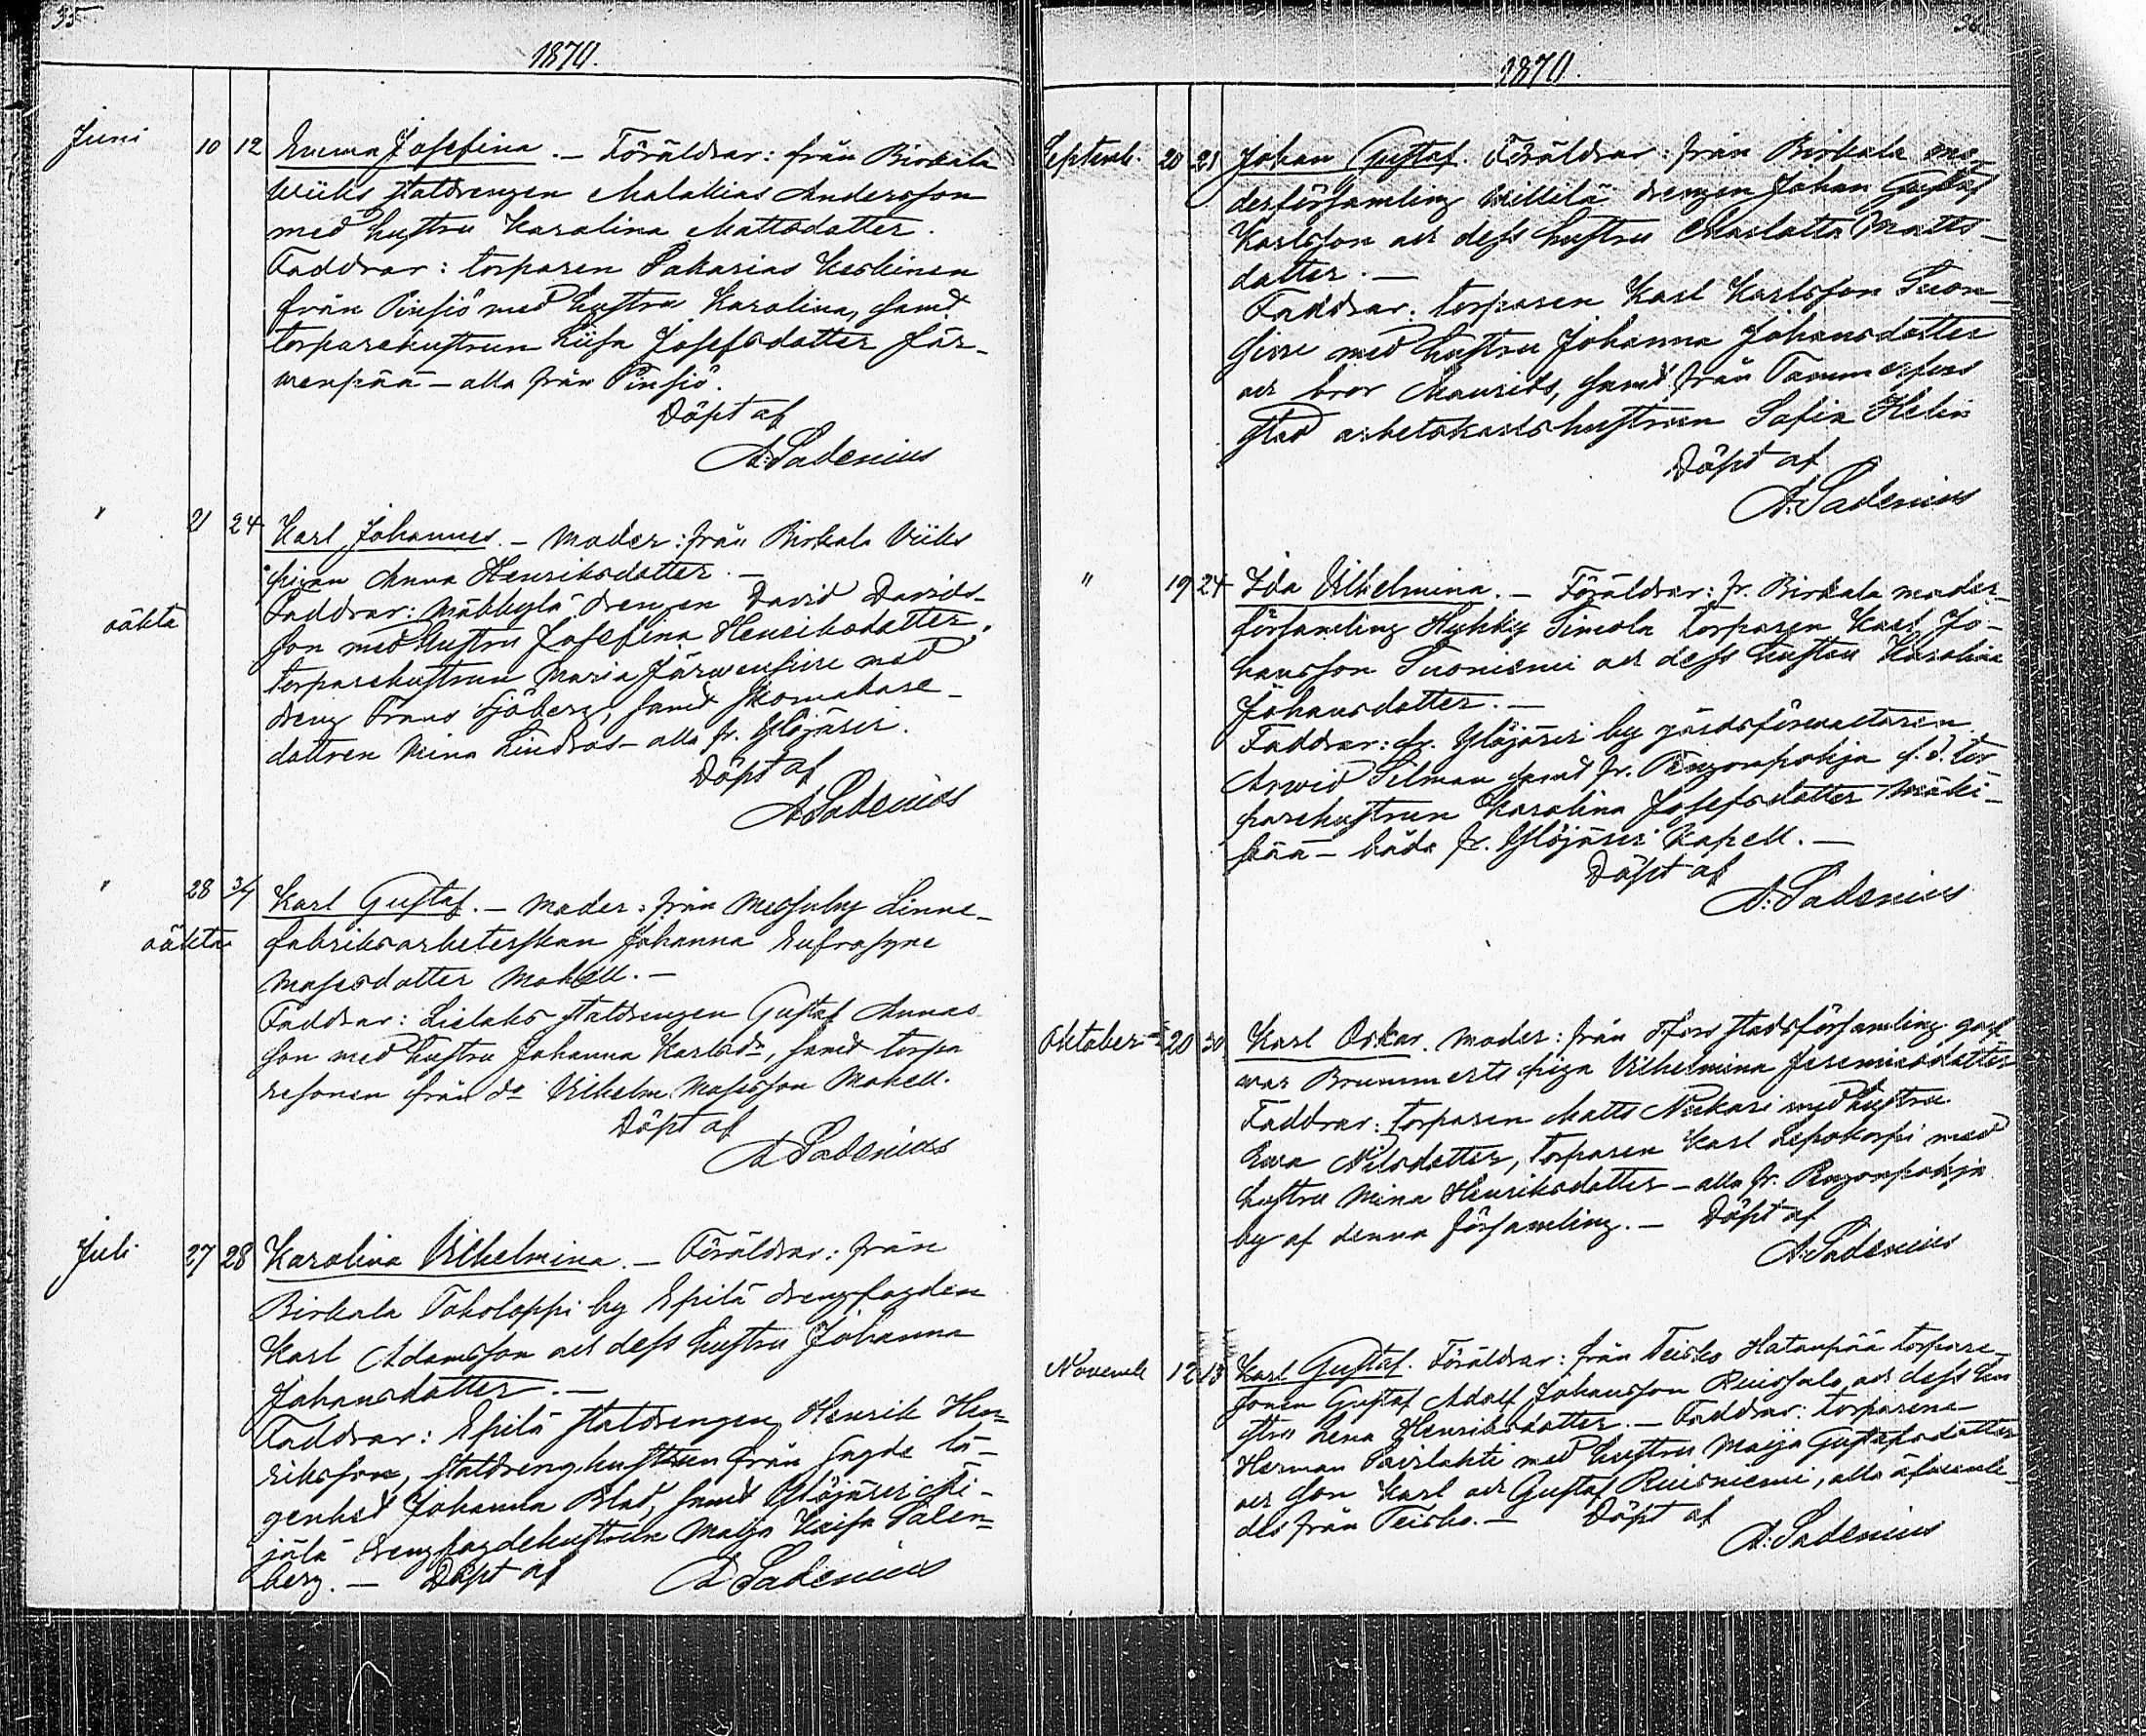 35
1870.
Juni 10 12 Emma Josefina. – Föräldrar: från Birkala
Wiiks statdrengen Malakias Andersson
med hustru Karolina Mattsdotter.
Faddrar: torparen Sakarias Keskinen
från Pinsiö med hustru Karolina, samt
torparehustrun Liisa Josefsdotter Jär-
wenpää – alla från Pinsiö.
Döpt af
A. Sadenius
" 21 24 Karl Johannes. – Moder: från Birkala Viiks
pigan Anna Henriksdotter. –
oäkta
Faddrar: Mäkkylä drengen David Davids-
son med hustru Josefina Henriksdotter,
torparehustrun Maria Järwensivu med
dreng Frans Sjöberg, samt skomakare-
dottren Mina Lindroos – alla fr. Ylöjärvi.
Döpt af
A Sadenius
" 28 3/7 Karl Gustaf. – Moder: från Messuby Linne-
oäkta fabriksarbeterskan Johanna Eufrosyne
Mosesdotter Makell. –
Faddrar: Lielaks statdrengen Gustaf Annas
son med hustru Johanna Karlsdr, samt torpa
resonen från do Vilhelm Mosesson Makell.
Döpt af
A Sadenius
Juli 27 28 Karolina Vilhelmina. – Föräldrar: från
Birkala Taholoppi by Epilä drengfogden
Karl Adamsson och dess hustru Johanna
Johansdotter. –
Faddrar: Epilä statdrengen Henrik Hen-
riksson, statdrenghustrun från lä-
genhet Johanna Blad, samt Ylöjärvi Äi-
jälä drengfogdehustrun Maija Kaisa Salen-
berg. – Döpt af A Sadenius
1870.
Septemb. 20 21 Johan Gustaf. Föräldrar: från Birkala mo-
derförsamling Willilä drengen Johan Gustaf
Karlsson och dess hustru Charlotta Matts-
dotter. –
Faddrar: torparen Karl Karlsson Suon-
sivu med hustru Johanna Johansdotter
och bror Maurits, samt från Tammerfors
stad arbetskarlshustrun Sofia Helin
Döpt af
A. Sadenius
" 19 24 Ida Vilhelmina. – Föräldrar: fr. Birkala moder-
församling Hyhky Simola torparen Karl Jo-
hansson Suoniemi och dess hustru Karolina
Johansdotter. –
Faddrar: fr. Ylöjärvi by gårdsförvaltaren
Arwid Silman samt fr. Pengonpohja f. d. tor
parehustrun Karolina Josefsdotter Mäki-
pää – båda fr. Ylöjärvi Kapell. –
Döpt af
A. Sadenius
Oktober 20 30 Karl Oskar. Moder: från Tfors stadsförsamling garf
var Brummerts piga Vilhelmina Jeremiasdotter
Faddrar: torparen Matts Niekari med hustru
Ewa Nilsdotter, torparen Karl Lepokorpi med
hustru Mina Henriksdotter – alla fr. Pengonpohja
by af denna församling. – Döpt af
A. Sadenius
Novemb 12 13 Karl Gustaf. Föräldrar: från Teisko Hatanpää torpare-
sonen Gustaf Adolf Johansson Ruissalo och dess hu
stru Lena Henriksdotter. – Faddrar: torparena
Herman Pairlahti med hustru Maija Gustafsdotter
och son Karl och Gustaf Ruisniemi, alla äfvenle-
des från Teisko. – Döpt af
A. Sadenius